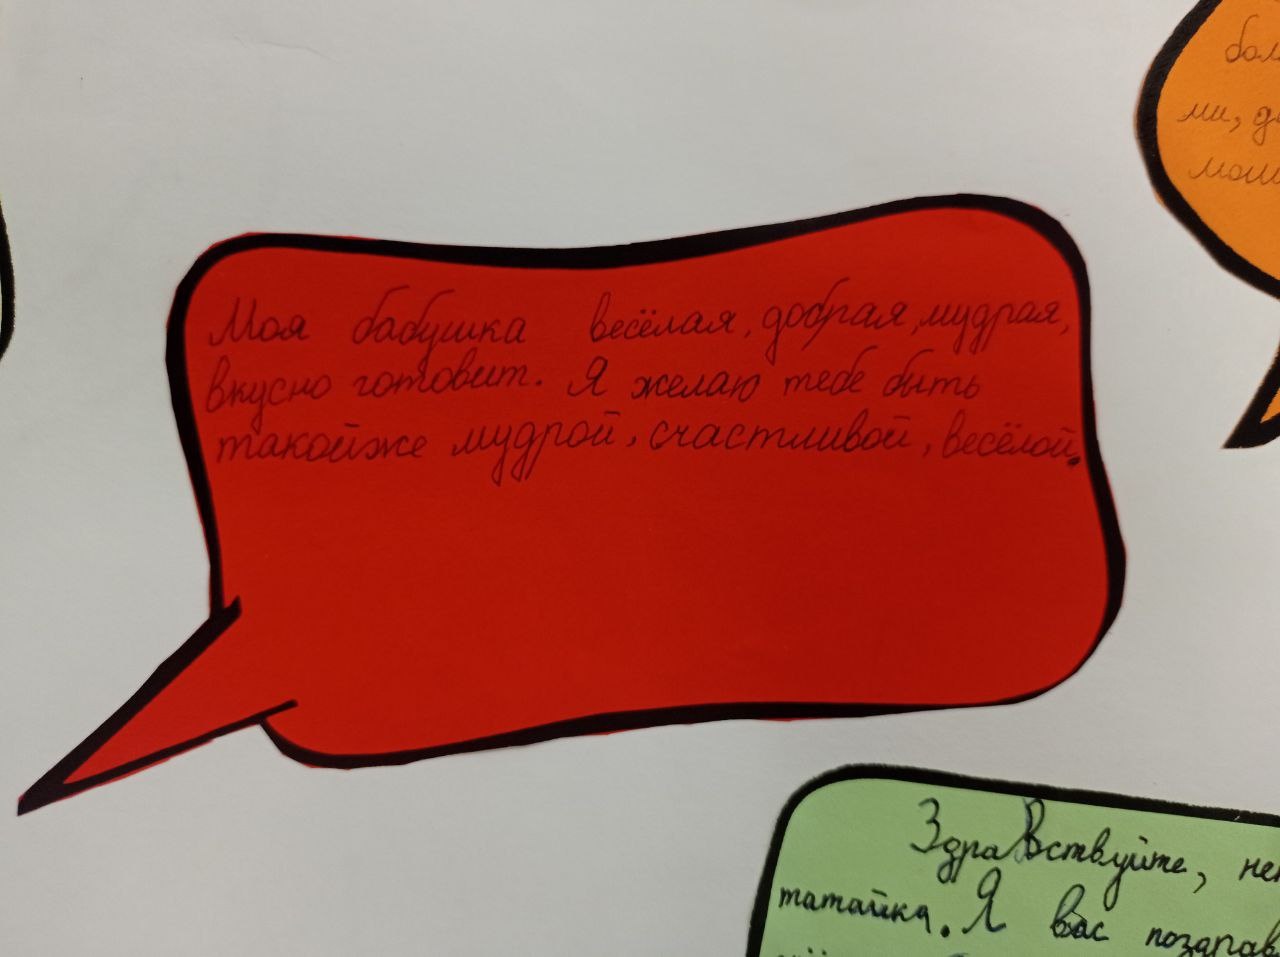 Моя бабушка весёлая, добрая, мудрая,
вкусно готовит. Я желаю тебе быть
такойже мудрой, счастливой, весёлой.
ми,
Здравствуйте,
татайка. Я вас